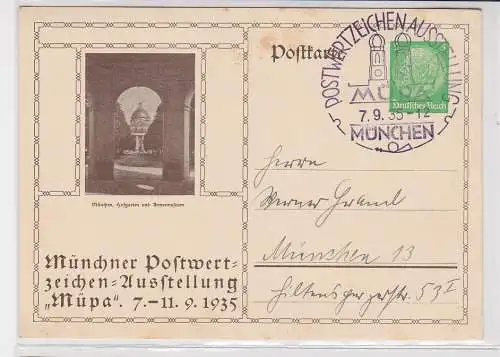 Postkarte
POSTWERTZEICHEN AUSSTELLUNG
MÜPA
7.9.35-12
MÜNCHEN
Deutsches Reich
München, Hofgarten und Armeemuseum
Münchner Postwert=
zeichen=Ausstellung
„Müpa“. 7.–11. 9. 1935
Herrn
Werner
München 13
Hiltenspergerstr. 53 I